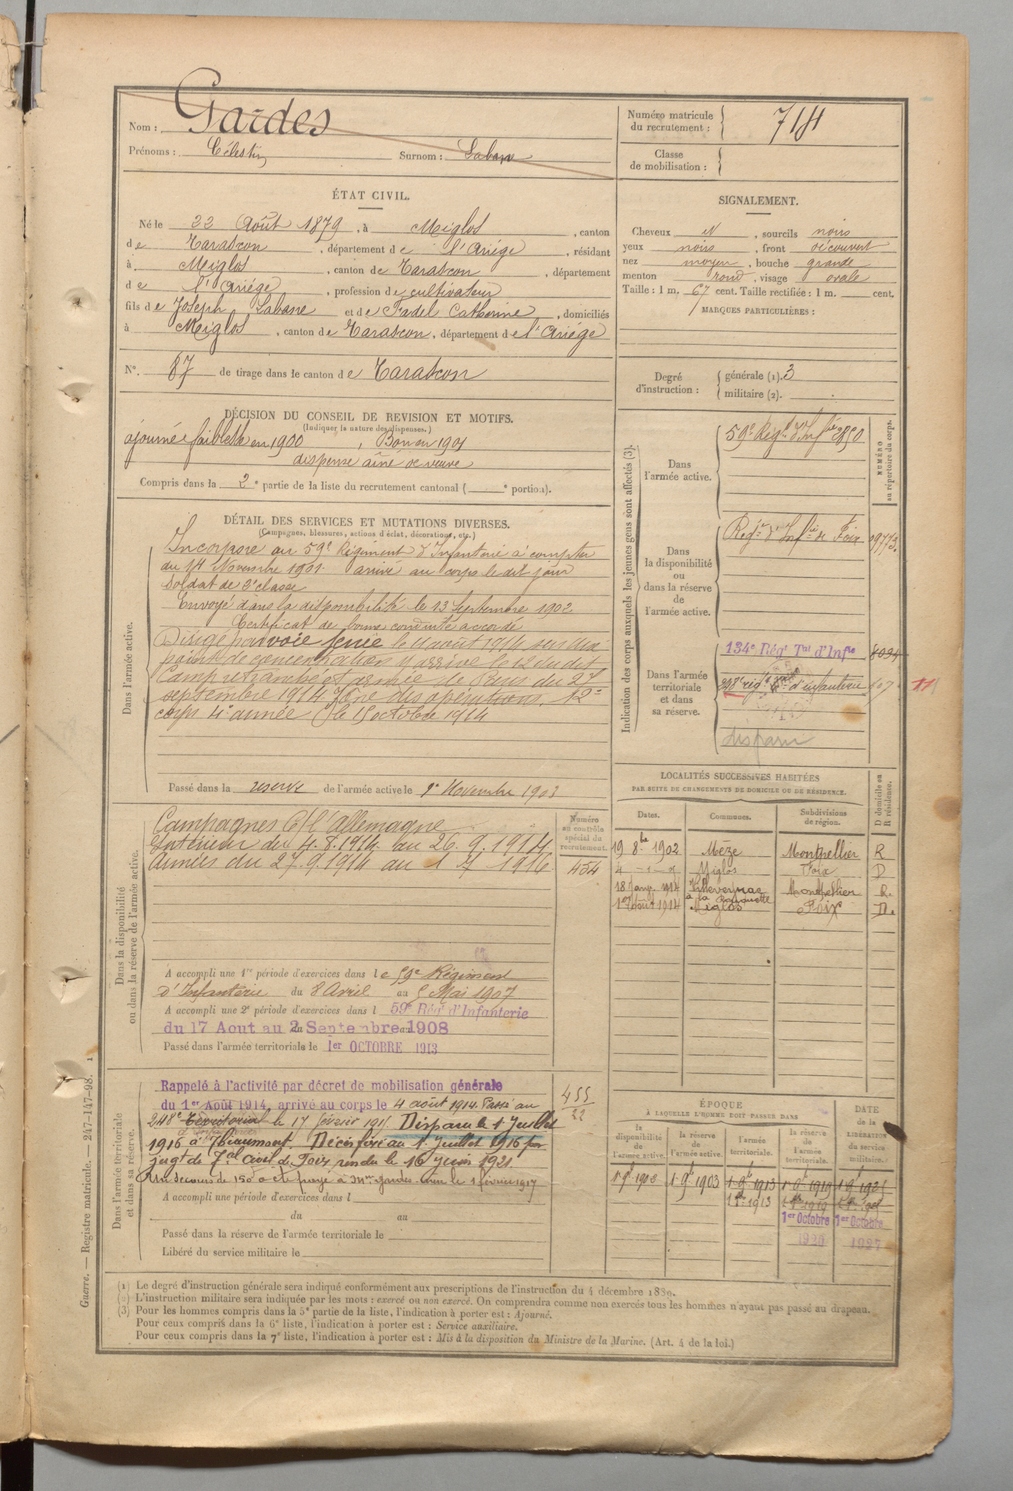 Nom : Gardes
Prénoms : Célestin Surnom : Labare
Numéro matricule
du recrutement : 718
Classe
de mobilisation :
ÉTAT CIVIL.
Né le 22 Août 1879, à Miglos, canton
de Tarascon, département de l'Ariége, résidant
à Miglos, canton de Tarascon, département
de l'Ariége, profession de cultivateur
fils de Joseph Labare et de Fadel Catherine, domiciliés
à Miglos, canton de Tarascon, département de l'Ariége
N°. 87 de tirage dans le canton de Tarascon
SIGNALEMENT.
Cheveux N, sourcils noirs
yeux noirs, front découvert
nez moyen, bouche grande
menton rond, visage ovale
Taille : 1 m. 67 cent. Taille rectifiée : 1 m. cent.
MARQUES PARTICULIÈRES :
Degré
d'instruction :
générale (1). 3
militaire (2).
DÉCISION DU CONSEIL DE REVISION ET MOTIFS.
(Indiquer la nature des dispenses.)
ajourné faiblesse en 1900, Bon en 1901
dispensé aîné de veuve
Compris dans la 2e partie de la liste du recrutement cantonal ( e portion).
DÉTAIL DES SERVICES ET MUTATIONS DIVERSES.
(Campagnes, blessures, actions d'éclat, décorations, etc.)
Dans l'armée active.
Incorporé au 59e Régiment d'Infanterie à compter
du 14 Novembre 1901. arrivé au corps le dit jour
soldat de 2e classe
Envoyé dans la disponibilité le 13 Septembre 1902
Certificat de bonne conduite accordé
Dirigé par voie ferrée le 11 août 1914 sur
point de concentration y arrive le 12 du dit
Camp retranché et armée de Paris du 27
septembre 1914 Zone des opérations. 12e
corps 4e armée le 15 octobre 1914
Passé dans la reserve de l'armée active le 1er Novembre 1903
Indication des corps auxquels les jeunes gens sont affectés (3).
NUMÉRO
au répertoire du corps.
Dans
l'armée active.
59e Régt d'Infie 2850
Dans
la disponibilité
ou
dans la réserve
de
l'armée active.
Régt d'Infie de Foix
Dans l'armée
territoriale
et dans
sa réserve.
134e Régt Tal d'Infie
248e rég d'infanterie
disparu
Dans la disponibilité
ou dans la réserve de l'armée active.
Campagnes C/ l'Allemagne
Intérieur du 4.8.1914 au 26.9.1914
Armées du 27.9.1914 au 1 7 1916
Numéro
au contrôle
spécial du
recrutement.
454
A accompli une 1re période d'exercices dans le 59e Régiment
d'Infanterie du 8 Avril au 5 Mai 1907
A accompli une 2e période d'exercices dans l 59e Rég' d'Infanterie
du 17 Aout au 2 Septembre 1908
Passé dans l'armée territoriale le 1er OCTOBRE 1913
LOCALITÉS SUCCESSIVES HABITÉES
PAR SUITE DE CHANGEMENTS DE DOMICILE OU DE RÉSIDENCE.
Dates. Communes. Subdivisions
de région. D domicile ou
R résidence.
19 8bre 1902 Mèze Montpellier R
Miglos Foix D
18 janv. 1914 Villeveyrac Montpellier R.
1er août 1914 Miglos Foix D.
Dans l'armée territoriale
et dans sa réserve.
Rappelé à l'activité par décret de mobilisation générale
du 1er Août 1914, arrivé au corps le 4 août 1914. Passé au
248e Territorial le 17 février 191 Disparu le 1 Juillet
1916 à Thiaumont. Décès fixé au 1 juillet 1916 par
jugt de Foix rendu le 16 juin 1921.
Un secours de 150 f a été payé à Mme Gardes le 1 février 1917
455
22
A accompli une période d'exercices dans l
du au
Passé dans la réserve de l'armée territoriale le
Libéré du service militaire le
ÉPOQUE
À LAQUELLE L'HOMME DOIT PASSER DANS
DATE
DE LA
LIBÉRATION
du service
militaire.
la
disponibilité
de
l'armée active. la réserve
de
l'armée active. l'armée
territoriale. la réserve
de
l'armée
territoriale.
1 9 1903 1 9bre 1903 1 9bre 1913 1 9bre 1919 1 9bre 1925
1 1913
1er Octobre 1er Octobre
1927
(1) Le degré d'instruction générale sera indiqué conformément aux prescriptions de l'instruction du 4 décembre 1889.
(2) L'instruction militaire sera indiquée par les mots : exercé ou non exercé. On comprendra comme non exercés tous les hommes n'ayant pas passé au drapeau.
(3) Pour les hommes compris dans la 5e partie de la liste, l'indication à porter est : Ajourné.
Pour ceux compris dans la 6e liste, l'indication à porter est : Service auxiliaire.
Pour ceux compris dans la 7e liste, l'indication à porter est : Mis à la disposition du Ministre de la Marine. (Art. 4 de la loi.)
Guerre. — Registre matricule. — 247-147-98. 1